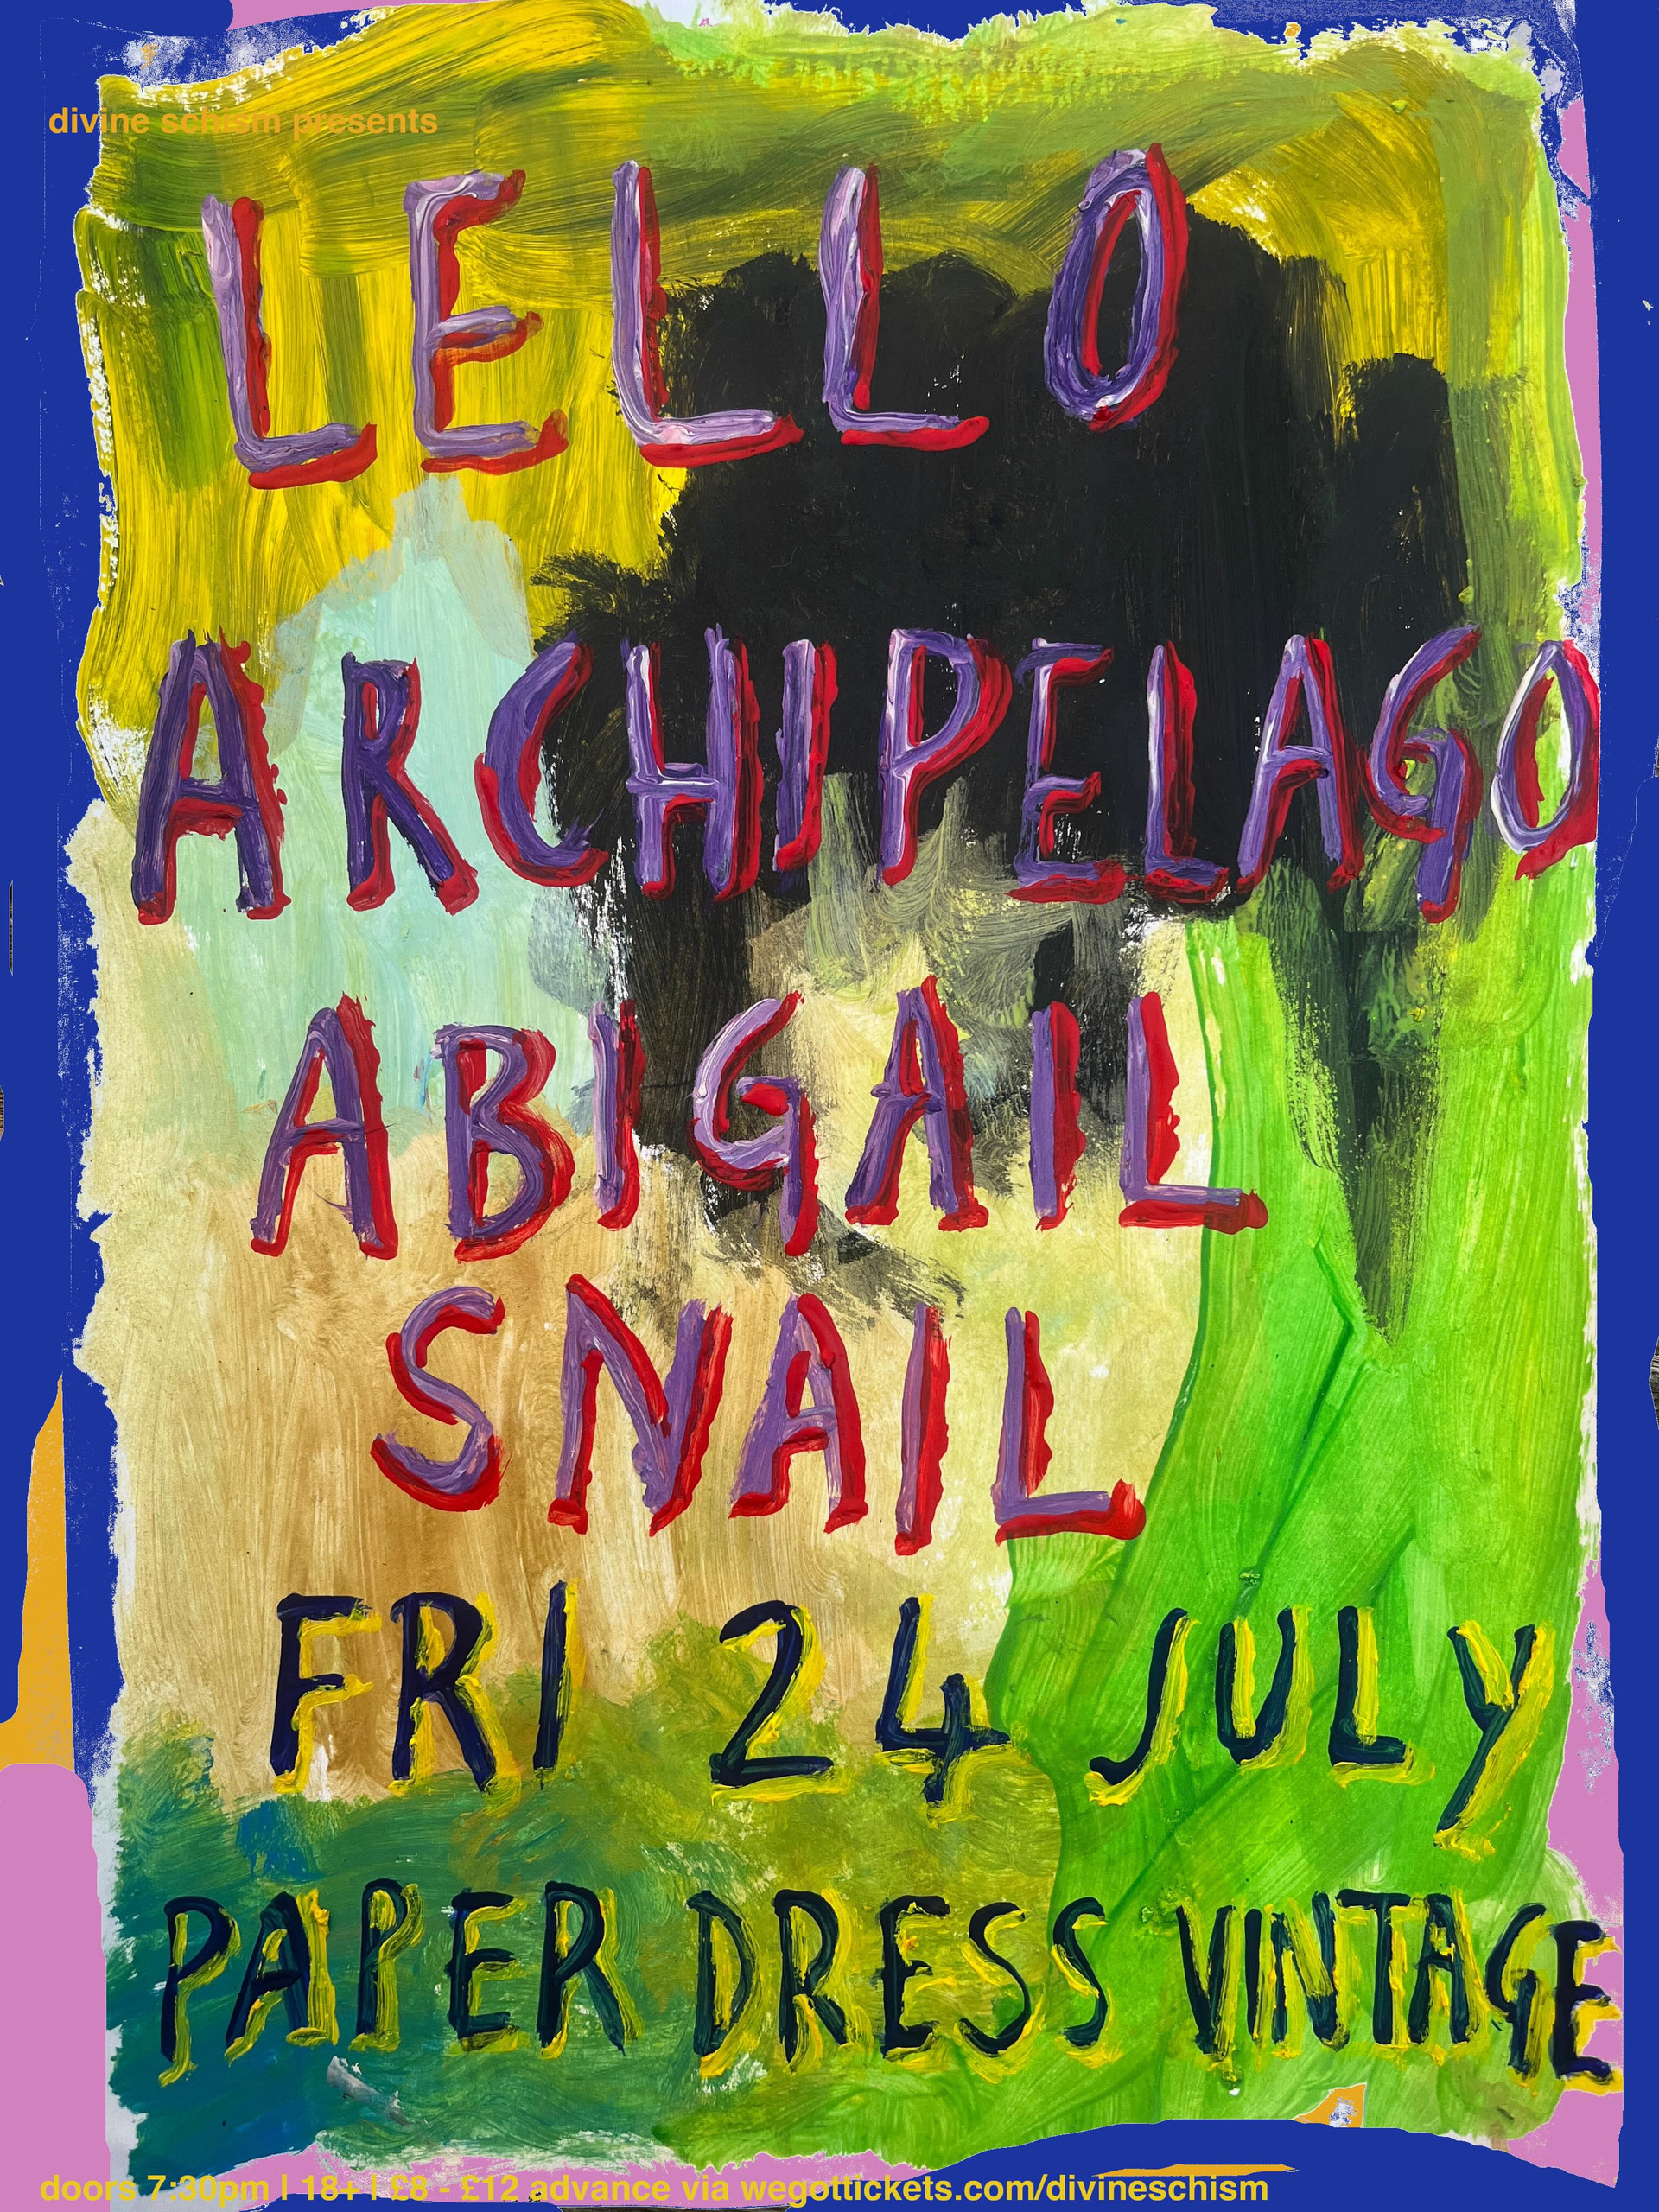 divine schism presents
LELLO
ARCHIPELAGO
ABIGAIL
SNAIL
FRI 24 JULY
PAPER DRESS VINTAGE
doors 7:30pm | 18+ | £8 - £12 advance via wegottickets.com/divineschism